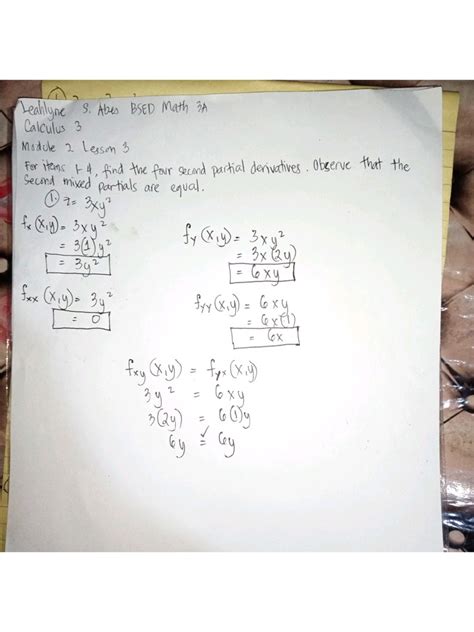 Leahlyne S. Abes BSED Math 3A
Calculus 3
Module 2 Lesson 3
For items 1-4, find the four second partial derivatives. Observe that the
second mixed partials are equal.
① z = 3xy²
fx (x,y) = 3xy²
= 3(1)y²
= 3y²
fy (x,y) = 3xy²
= 3x(2y)
= 6xy
fxx (x,y) = 3y²
= 0
fyy (x,y) = 6xy
= 6x(1)
= 6x
fxy (x,y) = fyx (x,y)
3y² = 6xy
3(2y) = 6(1)y
6y = 6y